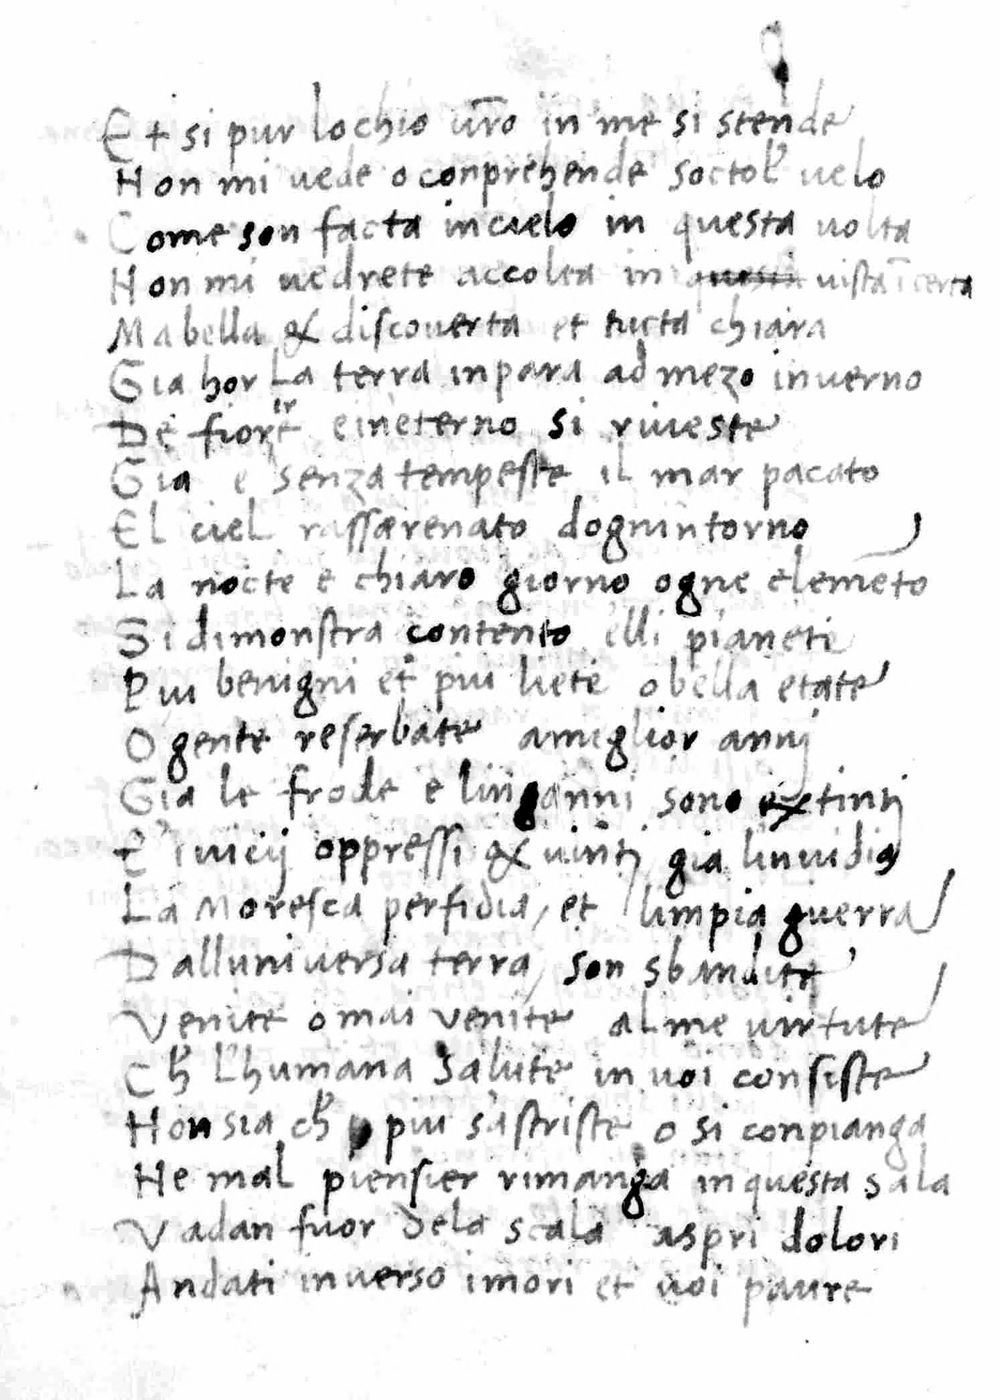 Et si pur lochio vr̃o in me si stende
Non mi uede o conprehende soctol' uelo
Come son facta incielo in questa uolta
Non mi uedrete accolta in questa uista ĩcerta
Ma bella & discouerta et tucta chiara
Gia hor La terra inpara ad mezo inuerno
De fiori eineterno si riueste
Gia e senza tempeste il mar pacato
El ciel rassærenato dognintorno
La nocte e chiaro giorno ogne elemẽto
Si dimonstra contento elli pianeti
Piu benigni et piu lieti o bella etate
O gente reserbate amiglior annj
Gia le frode e lingánni sono extintj
E i uicij oppressi & uintj gia linuidia
La Moresca perfidia, et limpia guerra
Dalluniuersa terra, son sbandita
Venite omai venite alme uirtute
Ch' L'humana salute in uoi consiste
Non sia ch' piu s'astriste o si conpianga
Ne mal piensier rimanga in questa sala
Vadan fuor dela scala aspri dolori
Andati inuerso imori et uoi paure